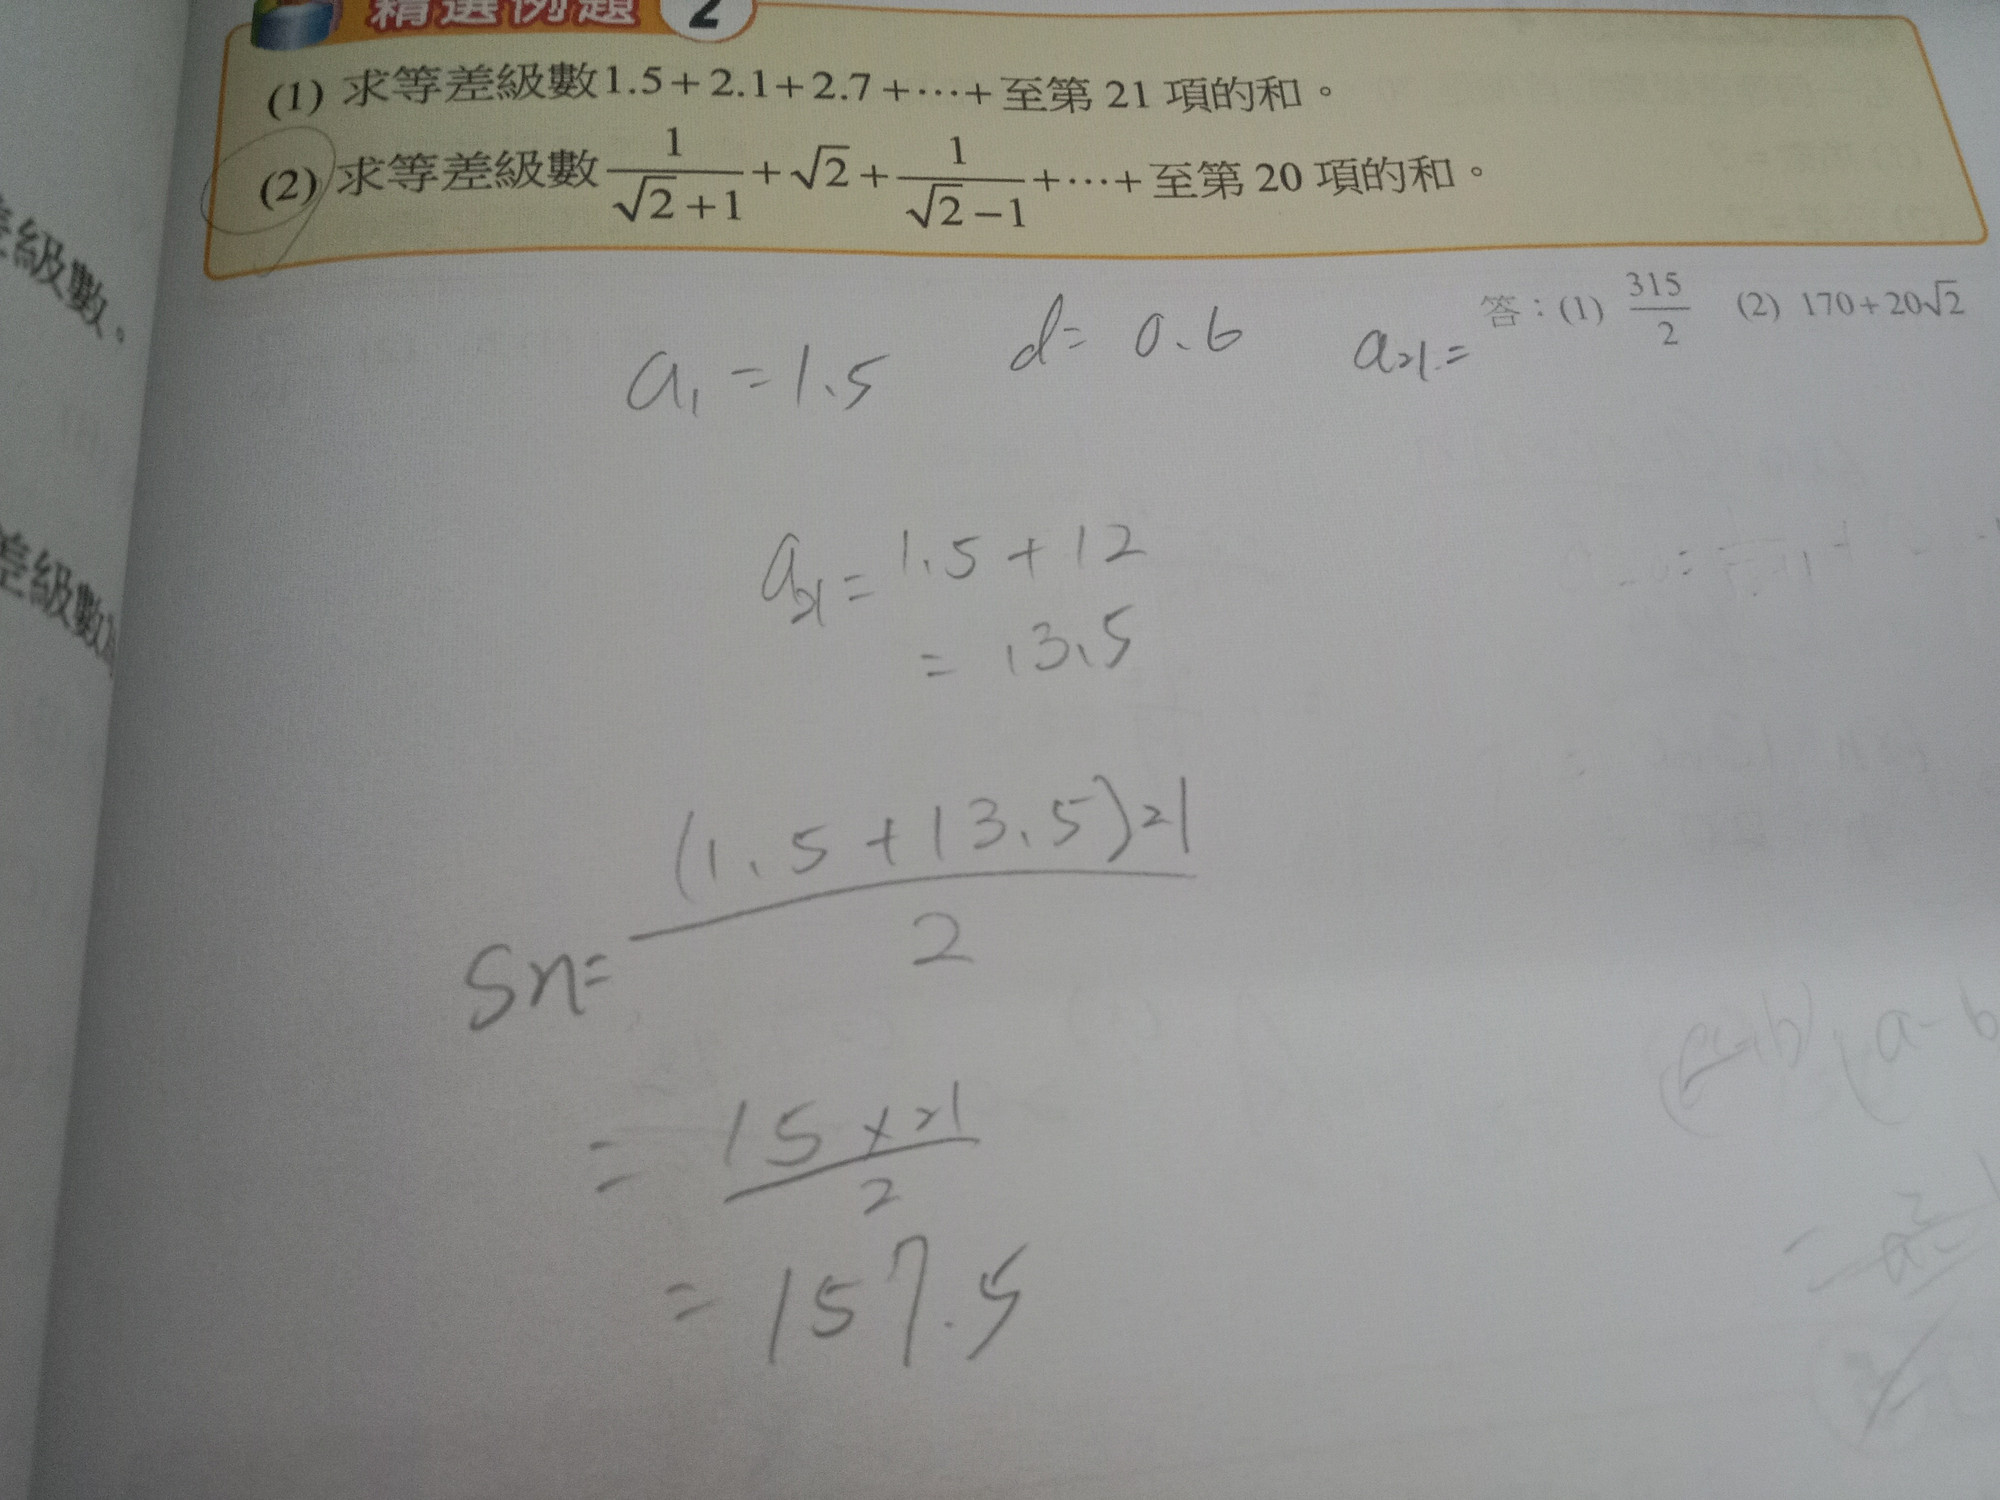 精選例題 2
(1) 求等差級數1.5+2.1+2.7+⋯+至第 21 項的和。
(2) 求等差級數 1/(√2+1) + √2 + 1/(√2−1) +⋯+至第 20 項的和。
答：(1) 315/2 (2) 170+20√2
a₁=1.5 d=0.6 a₂₁=
a₂₁=1.5+12
=13.5
Sn= (1.5+13.5)21/2
= 15×21/2
=157.5
級數。
差級數
a-b